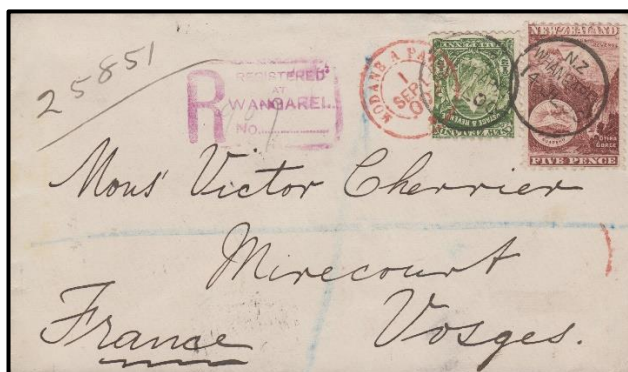 25851
R REGISTERED
AT
WANGAREI.
No.
MODANE A PA
1
SEPT
00
NEW ZEALAND
FIVE PENCE
OTIRA
GORGE
N.Z
Mons Victor Cherrier
Mirecourt
France Vosges.